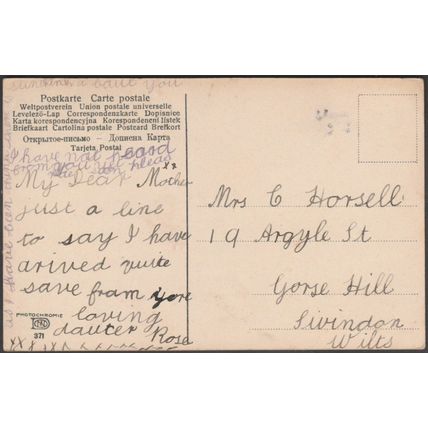 sunshine a bout you
Postkarte Carte postale
Weltpostverein Union postale universelle
Levelező-Lap Correspondenzkarte Dopisnice
Karta korespondencyjna Korespondenční listek
Briefkaart Cartolina postale Postcard Brefkort
Открытое-письмо — Дописна Карта
Tarjeta Postal
I have not heard
from you
My Dear Mother
just a line
to say I have
arived quite
save fram yore
loving
dauter Rosa
xx
PHOTOCHROMIE
371
as I have been
Mrs C Horsell
19 Argyle St
Gorse Hill
Swindon
Wilts